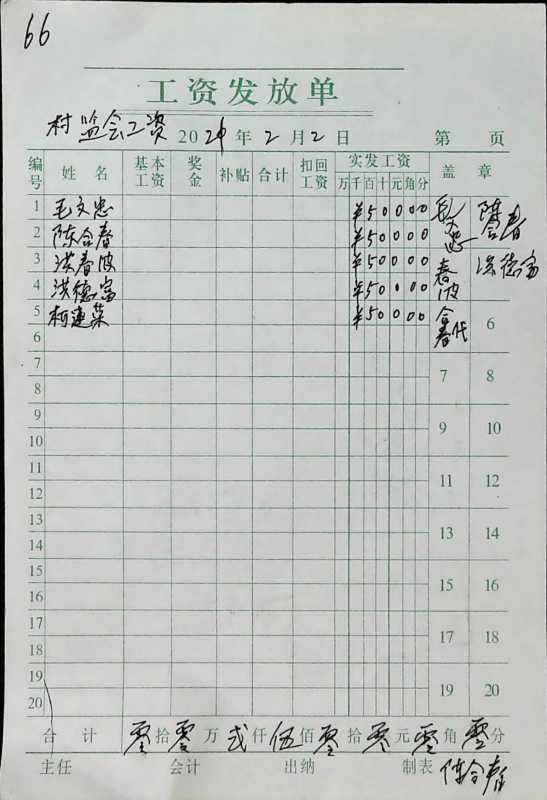 66
工资发放单
村监会工资 2024年2月2日 第 页
编号 姓名 基本工资 奖金 补贴 合计 扣回工资 实发工资 盖章
万千百十元角分
1 毛文忠 ¥50000 陈合春
2 陈合春 ¥50000
3 洪春波 ¥50000 春波 洪德富
4 洪德富 ¥50000
5 柯莲菜 ¥50000 合春代
6 6
7 7 8
8
9 9 10
10
11 11 12
12
13 13 14
14
15 15 16
16
17 17 18
18
19 19 20
20
合计 零拾零万弍仟伍佰零拾零元零角零分
主任 会计 出纳 制表 陈合春